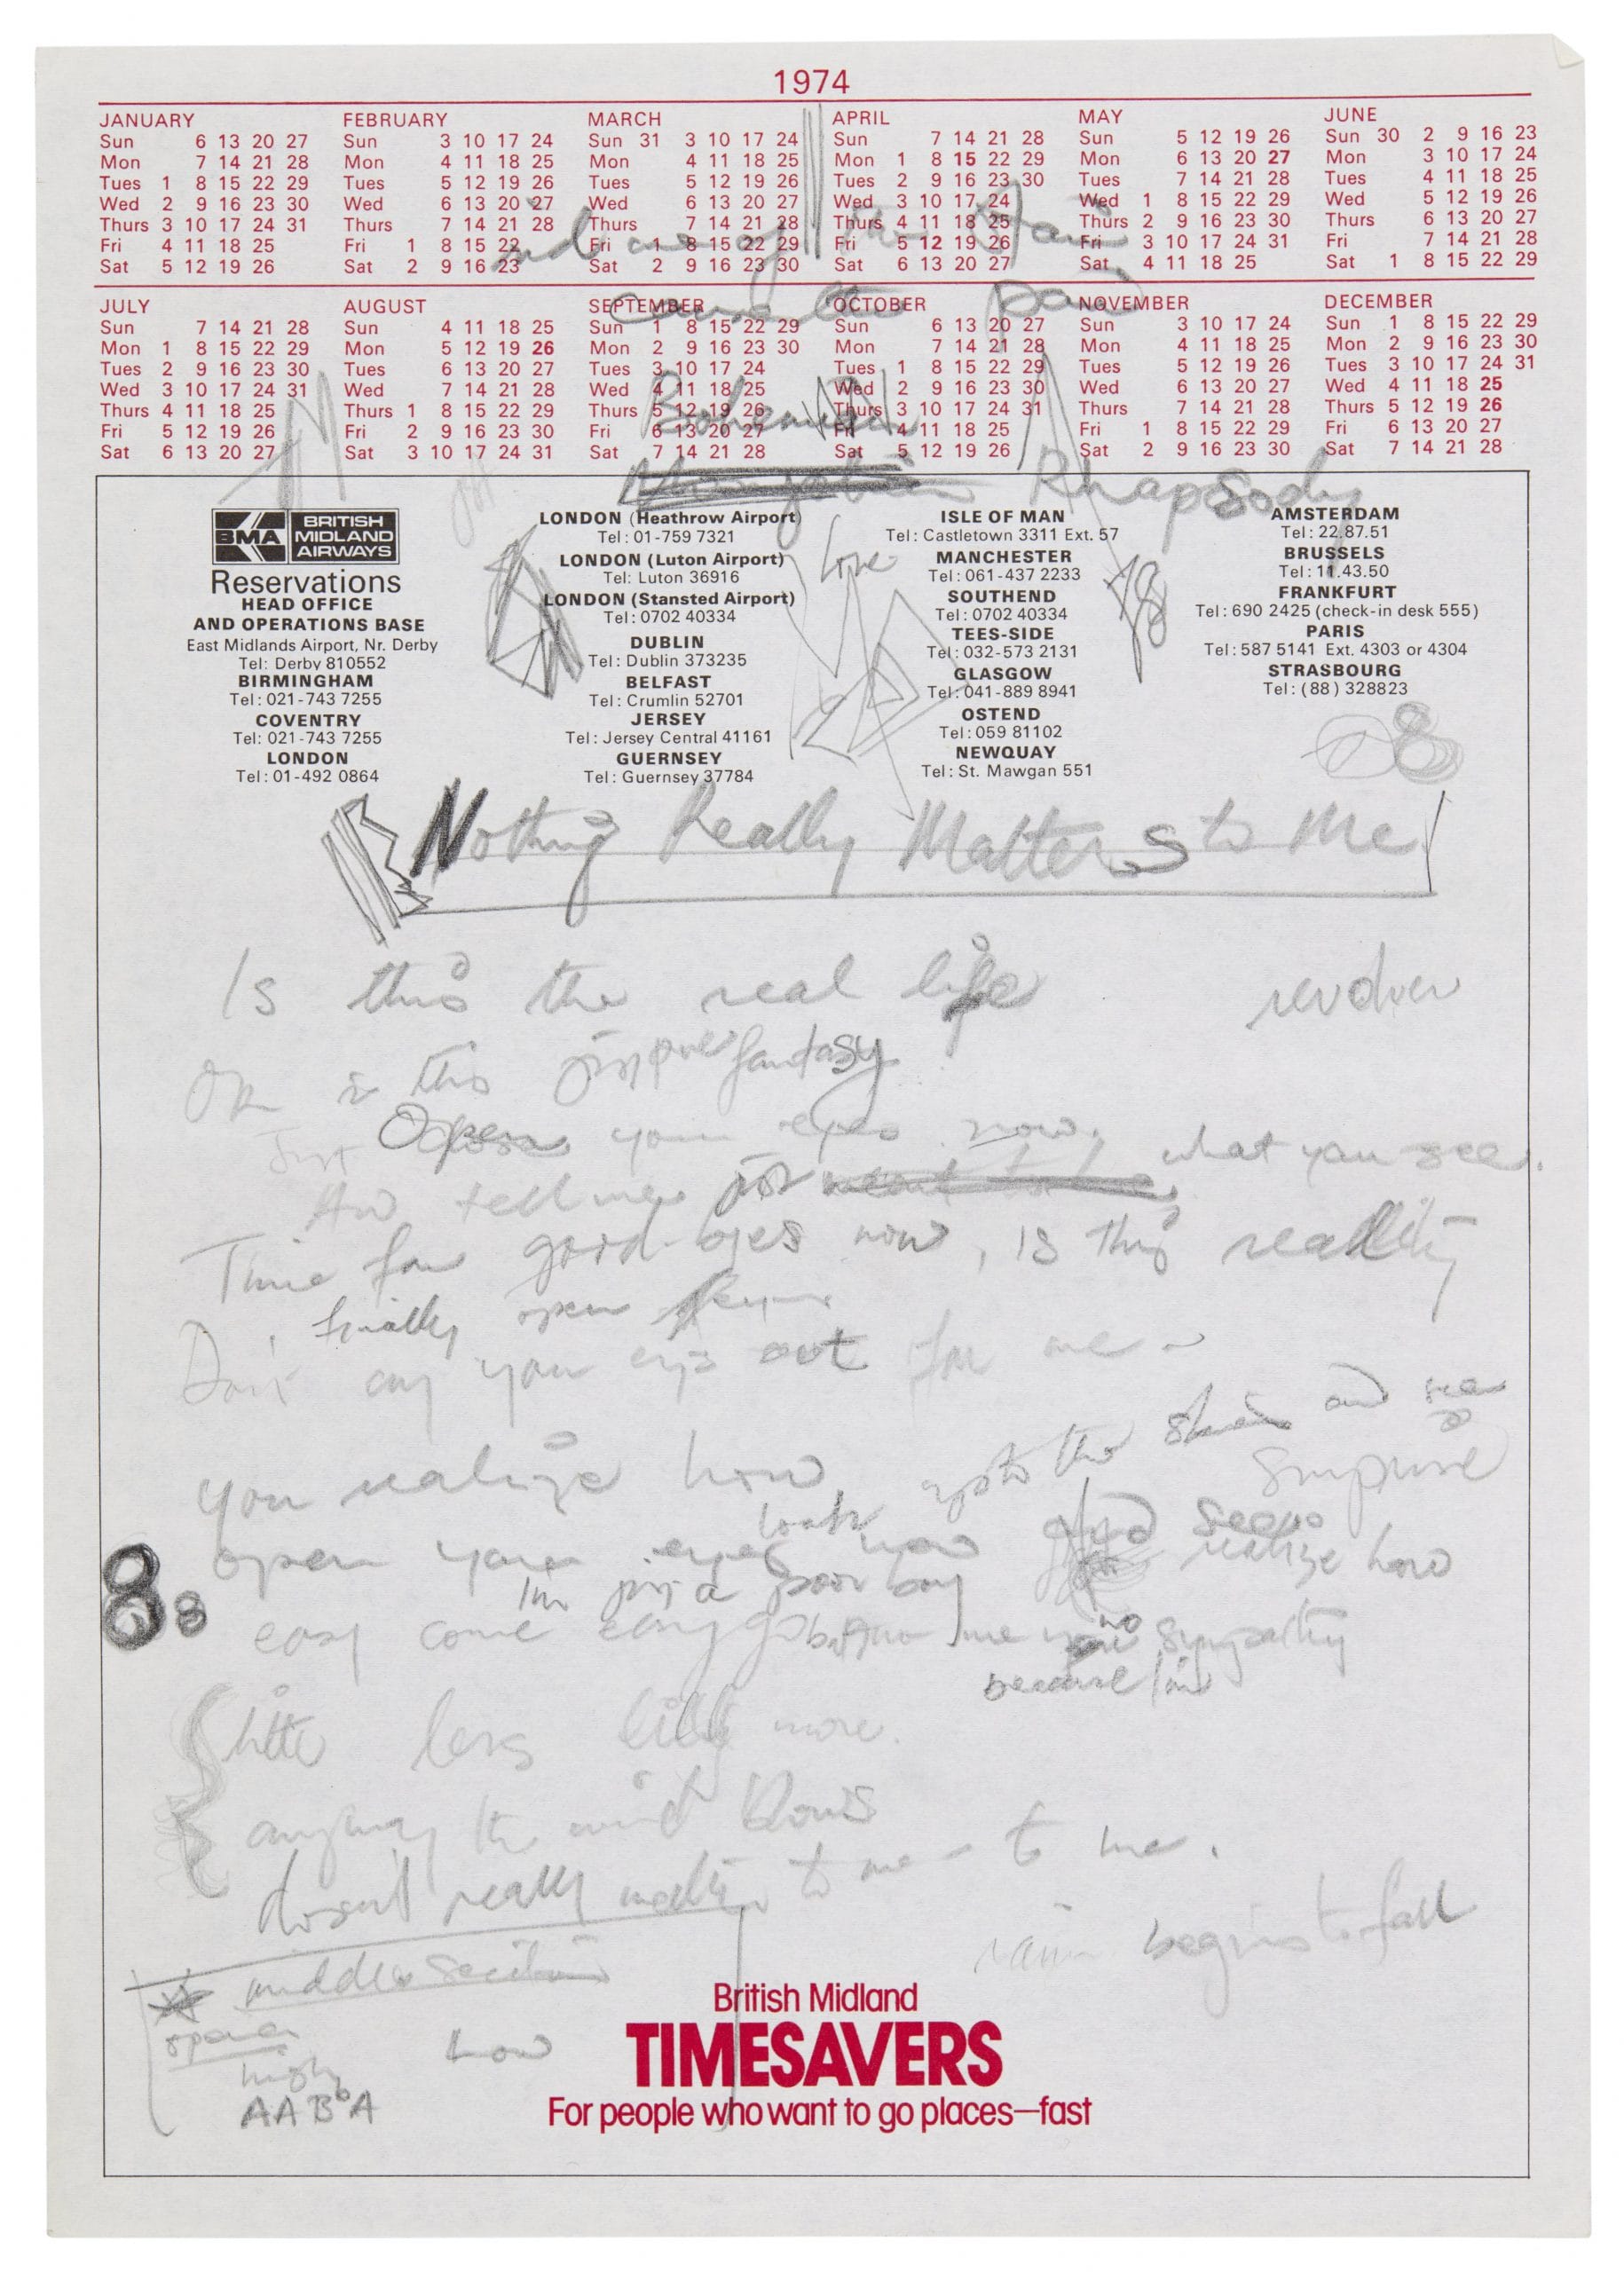 1974
JANUARY
Sun 6 13 20 27
Mon 7 14 21 28
Tues 1 8 15 22 29
Wed 2 9 16 23 30
Thurs 3 10 17 24 31
Fri 4 11 18 25
Sat 5 12 19 26
FEBRUARY
Sun 3 10 17 24
Mon 4 11 18 25
Tues 5 12 19 26
Wed 6 13 20 27
Thurs 7 14 21 28
Fri 1 8 15 22
Sat 2 9 16 23
MARCH
Sun 31 3 10 17 24
Mon 4 11 18 25
Tues 5 12 19 26
Wed 6 13 20 27
Thurs 7 14 21 28
Fri 1 8 15 22 29
Sat 2 9 16 23 30
APRIL
Sun 7 14 21 28
Mon 1 8 15 22 29
Tues 2 9 16 23 30
Wed 3 10 17 24
Thurs 4 11 18 25
Fri 5 12 19 26
Sat 6 13 20 27
MAY
Sun 5 12 19 26
Mon 6 13 20 27
Tues 7 14 21 28
Wed 1 8 15 22 29
Thurs 2 9 16 23 30
Fri 3 10 17 24 31
Sat 4 11 18 25
JUNE
Sun 30 2 9 16 23
Mon 3 10 17 24
Tues 4 11 18 25
Wed 5 12 19 26
Thurs 6 13 20 27
Fri 7 14 21 28
Sat 1 8 15 22 29
of the
and the
JULY
Sun 7 14 21 28
Mon 1 8 15 22 29
Tues 2 9 16 23 30
Wed 3 10 17 24 31
Thurs 4 11 18 25
Fri 5 12 19 26
Sat 6 13 20 27
AUGUST
Sun 4 11 18 25
Mon 5 12 19 26
Tues 6 13 20 27
Wed 7 14 21 28
Thurs 1 8 15 22 29
Fri 2 9 16 23 30
Sat 3 10 17 24 31
SEPTEMBER
Sun 1 8 15 22 29
Mon 2 9 16 23 30
Tues 3 10 17 24
Wed 4 11 18 25
Thurs 5 12 19 26
Fri 6 13 20 27
Sat 7 14 21 28
OCTOBER
Sun 6 13 20 27
Mon 7 14 21 28
Tues 1 8 15 22 29
Wed 2 9 16 23 30
Thurs 3 10 17 24 31
Fri 4 11 18 25
Sat 5 12 19 26
NOVEMBER
Sun 3 10 17 24
Mon 4 11 18 25
Tues 5 12 19 26
Wed 6 13 20 27
Thurs 7 14 21 28
Fri 1 8 15 22 29
Sat 2 9 16 23 30
DECEMBER
Sun 1 8 15 22 29
Mon 2 9 16 23 30
Tues 3 10 17 24 31
Wed 4 11 18 25
Thurs 5 12 19 26
Fri 6 13 20 27
Sat 7 14 21 28
Bohemian
Mongolian Rhapsody
BMA BRITISH MIDLAND AIRWAYS
Reservations
HEAD OFFICE
AND OPERATIONS BASE
East Midlands Airport, Nr. Derby
Tel: Derby 810552
BIRMINGHAM
Tel: 021-743 7255
COVENTRY
Tel: 021-743 7255
LONDON
Tel: 01-492 0864
LONDON (Heathrow Airport)
Tel: 01-759 7321
LONDON (Luton Airport)
Tel: Luton 36916
LONDON (Stansted Airport)
Tel: 0702 40334
DUBLIN
Tel: Dublin 373235
BELFAST
Tel: Crumlin 52701
JERSEY
Tel: Jersey Central 41161
GUERNSEY
Tel: Guernsey 37784
Love
ISLE OF MAN
Tel: Castletown 3311 Ext. 57
MANCHESTER
Tel: 061-437 2233
SOUTHEND
Tel: 0702 40334
TEES-SIDE
Tel: 032-573 2131
GLASGOW
Tel: 041-889 8941
OSTEND
Tel: 059 81102
NEWQUAY
Tel: St. Mawgan 551
AMSTERDAM
Tel: 22.87.51
BRUSSELS
Tel: 11.43.50
FRANKFURT
Tel: 690 2425 (check-in desk 555)
PARIS
Tel: 587 5141 Ext. 4303 or 4304
STRASBOURG
Tel: (88) 328823
8
8
Nothing Really Matters to Me
Is this the real life
revolver
Or is this just pure fantasy
Just Open your eyes now,
And tell me what you see.
Time for good byes now, is this reallity
finally open
Don't cry your eyes out for me
up to the skies and see
you realize how surprise
look
open your eyes now and see realize how
I'm just a poor boy
8 8
easy come easy go me no sympathy
because I'm
little less little more.
anyway the wind blows
doesn't really matter to me - to me.
rain begins to fall
middle section
opera
high low
AABbA
British Midland
TIMESAVERS
For people who want to go places—fast